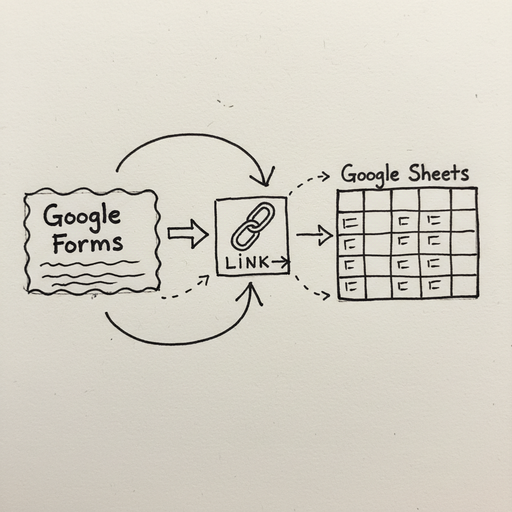 Google
Forms
LiNK
Google Sheets